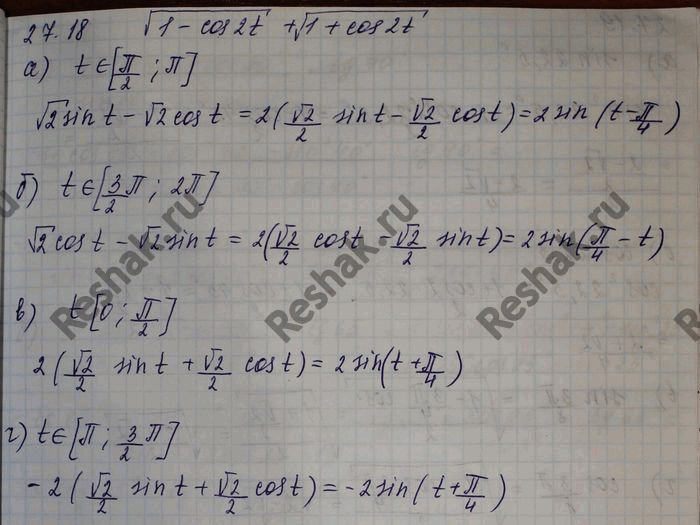 27.18 √(1 - cos2t) + √(1 + cos2t)
а) t ∈ [π/2 ; π]
√2 sin t - √2 cos t = 2(√2/2 sin t - √2/2 cos t) = 2 sin (t - π/4)
б) t ∈ [3/2 π ; 2π]
√2 cos t - √2 sin t = 2(√2/2 cos t - √2/2 sin t) = 2 sin (π/4 - t)
в) t [0 ; π/2]
2 (√2/2 sin t + √2/2 cos t) = 2 sin(t + π/4)
г) t ∈ [π ; 3/2 π]
- 2 (√2/2 sin t + √2/2 cos t) = -2 sin (t + π/4)
Reshak.ru
Reshak.ru
Reshak.ru